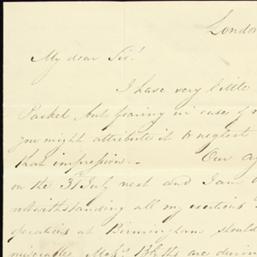 London
My dear Sir!
I have very little
Packet but fearing in case of
you might attribute it to neglect
that impression._ Our
on the 31st July next and I am
notwithstanding all my exertions
operations at Birmingham should
miserable. Mess.rs are